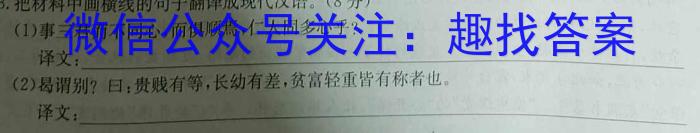 3.把材料中画横线的句子翻译成现代汉语。(8分)
(1)事三君而不同心,而俱顺焉,仁人固多心乎?
微信公众号关注:趣找答案
译文:
(2)曷谓别?曰:贵贱有等,长幼有差,贫富轻重皆有称者也。
译文: